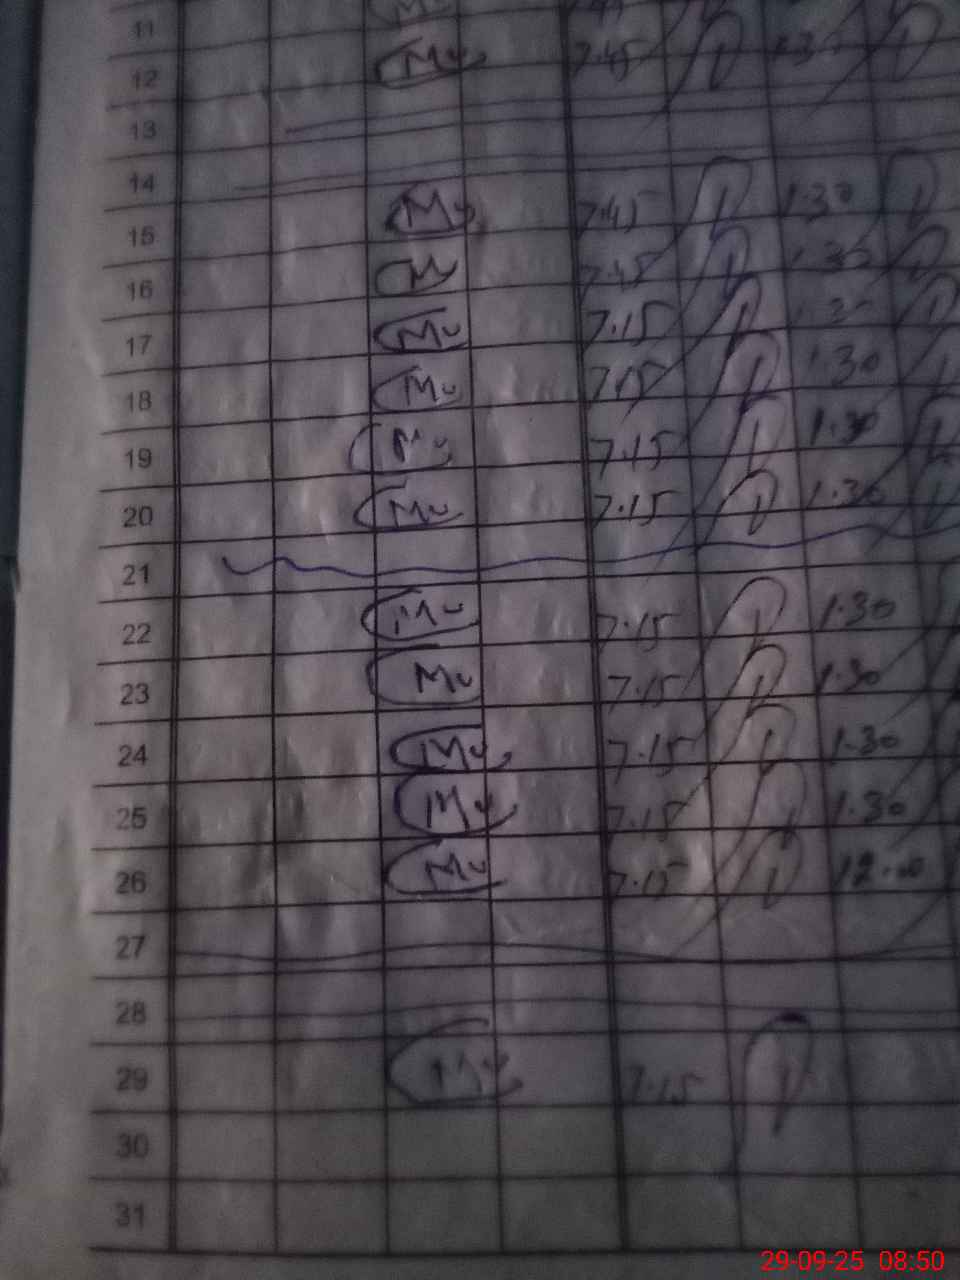 11 Mu 7.45
12 Mu 7.45 1.3
13
14
15 Mu 7.45 1.30
16 M 7.45 1.30
17 Mu 7.15
18 Mu 7.15 1.30
19 Mu 7.15 1.30
20 Mu 7.15 1.30
21
22 Mu 7.15 1.30
23 Mu 7.15 1.30
24 Mu 7.15 1.30
25 Mu 7.15 1.30
26 Mu 7.15 12.00
27
28
29 7.15
30
31
29-09-25 08:50